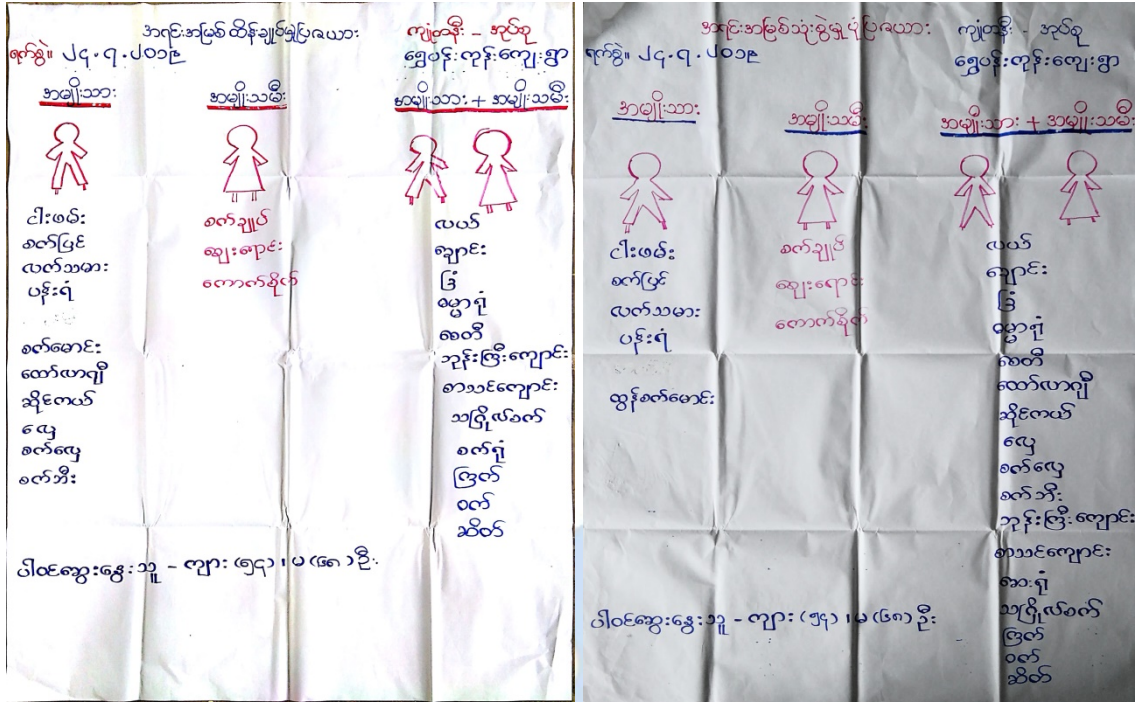 အရင်းအမြစ် ထိန်းချုပ်မှုပြဇယား
ကျုံတနီး - အုပ်စု
ရက်စွဲ။ ၂၄.၇.၂၀၁၉
ရွှေပန်းကုန်းကျေးရွာ
အမျိုးသား
အမျိုးသမီး
အမျိုးသား + အမျိုးသမီး
ငါးဖမ်း
စက်ပြင်
လက်သမား
ပန်းရံ
စက်မောင်း
ထော်လာဂျီ
ဆိုင်ကယ်
လှေ
စက်လှေ
စက်ဘီး
စက်ချုပ်
ဈေးရောင်း
ကောက်စိုက်
လယ်
ချောင်း
ခြံ
ဓမ္မာရုံ
စေတီ
ဘုန်းကြီးကျောင်း
စာသင်ကျောင်း
သင်္ဂြိုလ်စက်
စက်ရုံ
ကြက်
ဝက်
ဆိတ်
ပါဝင်ဆွေးနွေးသူ - ကျား (၅၄)၊ မ (၆၈) ဦး
အရင်းအမြစ်သုံးစွဲမှုပုံပြဇယား
ကျုံတနီး - အုပ်စု
ရက်စွဲ။ ၂၄.၇.၂၀၁၉
ရွှေပန်းကုန်းကျေးရွာ
အမျိုးသား
အမျိုးသမီး
အမျိုးသား + အမျိုးသမီး
ငါးဖမ်း
စက်ပြင်
လက်သမား
ပန်းရံ
ထွန်စက်မောင်း
စက်ချုပ်
ဈေးရောင်း
ကောက်စိုက်
လယ်
ချောင်း
ခြံ
ဓမ္မာရုံ
စေတီ
ထော်လာဂျီ
ဆိုင်ကယ်
လှေ
စက်လှေ
စက်ဘီး
ဘုန်းကြီးကျောင်း
စာသင်ကျောင်း
ဆေးရုံ
သင်္ဂြိုလ်စက်
ကြက်
ဝက်
ဆိတ်
ပါဝင်ဆွေးနွေးသူ - ကျား (၅၄)၊ မ (၆၈) ဦး